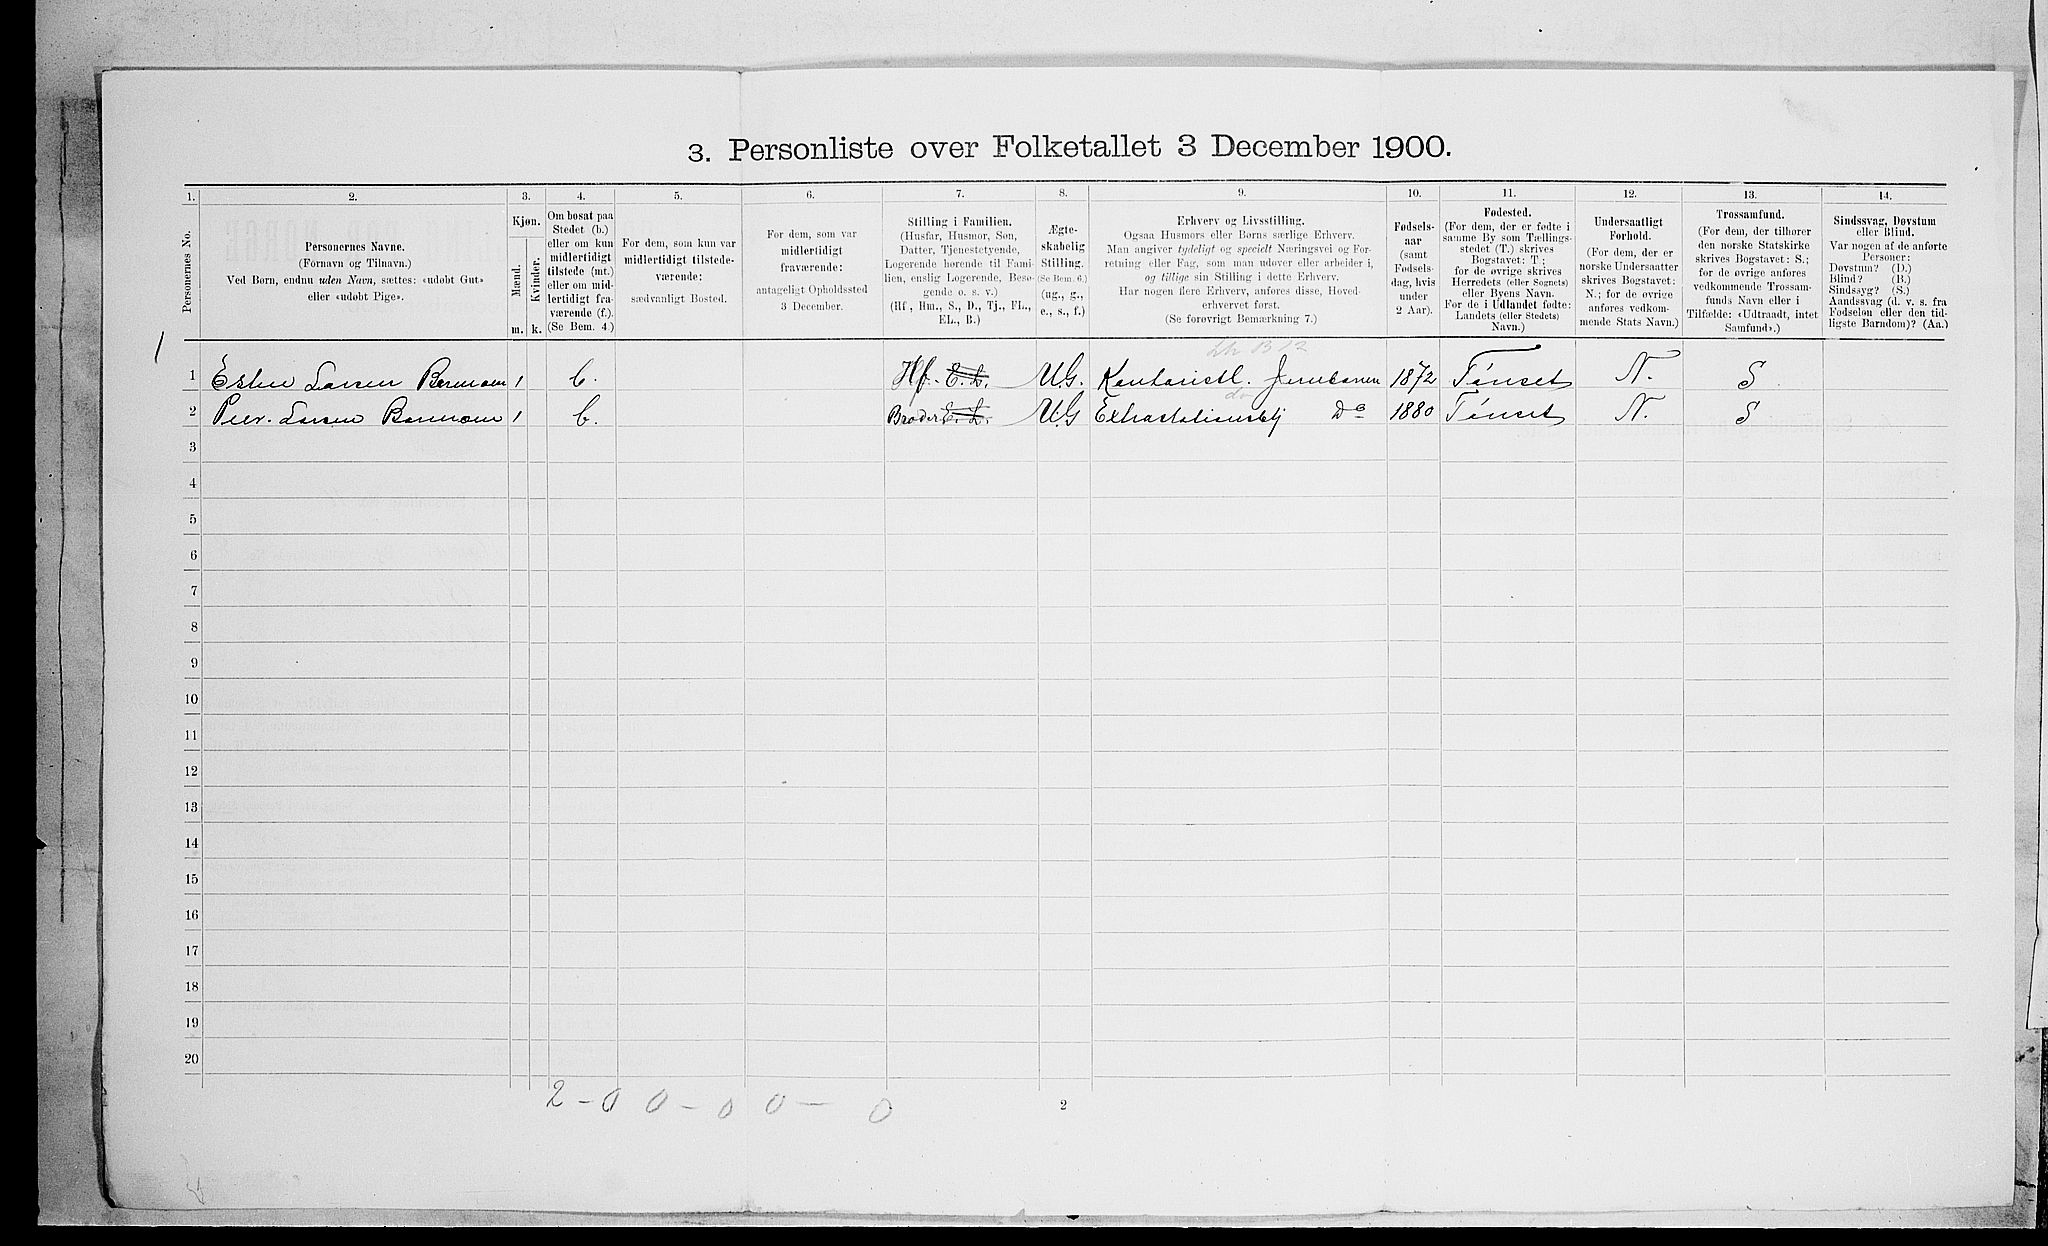 3. Personliste over Folketallet 3 December 1900.
1. 2. 3. 4. 5. 6. 7. 8. 9. 10. 11. 12. 13. 14.
Personernes No.
Personernes Navne.
(Fornavn og Tilnavn.)
Ved Børn, endnu uden Navn, sættes: «udøbt Gut»
eller «udøbt Pige».
Kjøn.
Mænd.
Kvinder.
m. k.
Om bosat paa
Stedet (b.)
eller om kun
midlertidigt
tilstede (mt.)
eller om mid-
lertidigt fra-
værende (f.).
(Se Bem. 4.)
For dem, som kun var
midlertidigt tilstede-
værende:
sædvanligt Bosted.
For dem, som var
midlertidigt
fraværende:
antageligt Opholdssted
3 December.
Stilling i Familien.
(Husfar, Husmor, Søn,
Datter, Tjenestetyende,
Logerende hørende til Fami-
lien, enslig Logerende, Besø-
gende o. s. v.)
(Hf., Hm., S., D., Tj., FL.,
EL., B.)
Ægte-
skabelig
Stilling.
(Se Bem. 6.)
(ug., g.,
e., s., f.)
Erhverv og Livsstilling.
Ogsaa Husmors eller Børns særlige Erhverv.
Man angiver tydeligt og specielt Næringsvei og For-
retning eller Fag, som man udøver eller arbeider i,
og tillige sin Stilling i dette Erhverv.
Har nogen flere Erhverv, anføres disse, Hoved-
erhvervet først.
(Se forøvrigt Bemærkning 7.)
Fødsels-
aar
(samt
Fødsels-
dag, hvis
under
2 Aar).
Fødested.
(For dem, der er fødte i
samme By som Tællings-
stedet (T.) skrives
Bogstavet: T;
for de øvrige skrives
Herredets (eller Sognets)
eller Byens Navn.
For de i Udlandet fødte:
Landets (eller Stedets)
Navn.)
Undersaatligt
Forhold.
(For dem, der er
norske Undersaatter
skrives Bogstavet:
N.; for de øvrige
anføres vedkom-
mende Stats Navn.)
Trossamfund.
(For dem, der tilhører
den norske Statskirke
skrives Bogstavet: S.;
for de øvrige anføres
vedkommende Trossam-
funds Navn eller i
Tilfælde: «Udtraadt, intet
Samfund».)
Sindssvag, Døvstum
eller Blind.
Var nogen af de anførte
Personer:
Døvstum? (D.)
Blind? (B.)
Sindssyg? (S.)
Aandssvag (d. v. s. fra
Fødselen eller den tid-
ligste Barndom)? (Aa.)
1
1 Larsen 1 b. Hf. E. L. U.G. Kontoristl. Jernbanen 1872 Tønset N. S
2 Peer Larsen 1 b. Broder E. L. U.G Do 1880 Tønset N. S
3
4
5
6
7
8
9
10
11
12
13
14
15
16
17
18
19
20
2 - 0 0 - 0 0 - 0
2